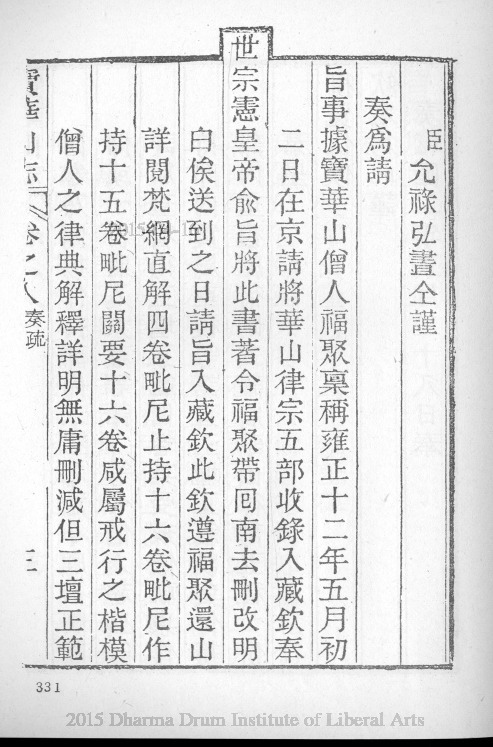 臣允祿弘晝仝謹
奏爲請
旨事據寶華山僧人福聚稟稱雍正十二年五月初
二日在京請將華山律宗五部收錄入藏欽奉
世宗憲皇帝俞旨將此書著令福聚帶囘南去刪改明
白俟送到之日請旨入藏欽此欽遵福聚還山
詳閱梵網直解四卷毗尼止持十六卷毗尼作
持十五卷毗尼關要十六卷咸屬戒行之楷模
僧人之律典解釋詳明無庸刪減但三壇正範
寶華山志 卷之八 奏疏 三
331
2015 Dharma Drum Institute of Liberal Arts